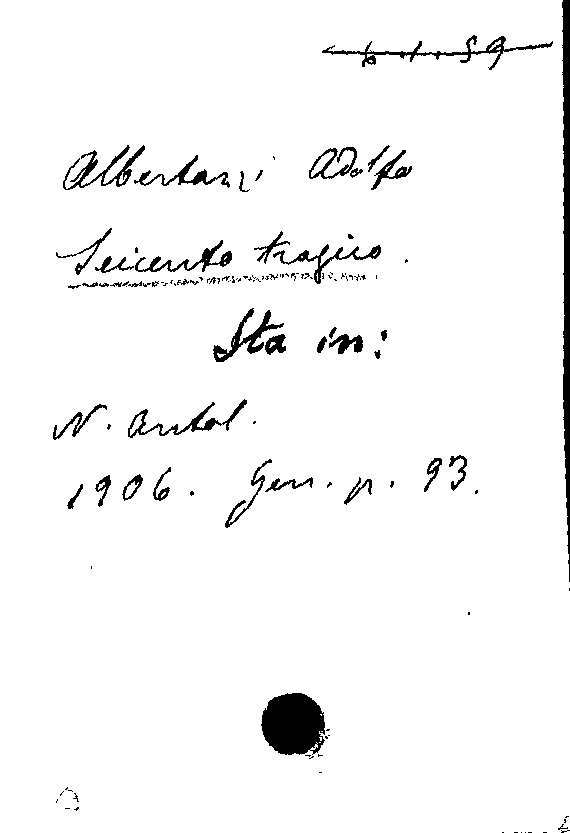 Albertazzi Adolfo
Seicento tragico.
Sta in:
N. Antol.
1906. Gen. p. 93.